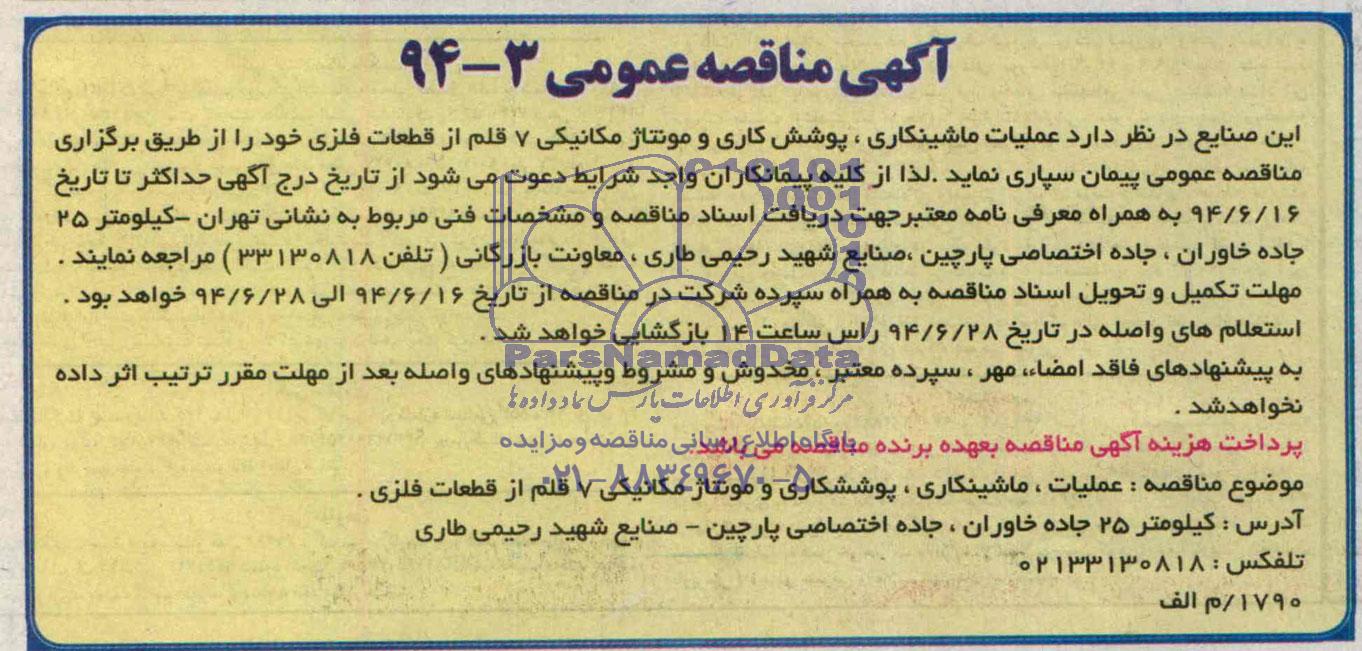 آگهی مناقصه عمومی ۳-۹۴
این صنایع در نظر دارد عملیات ماشینکاری ، پوشش کاری و مونتاژ مکانیکی ۷ قلم از قطعات فلزی خود را از طریق برگزاری
مناقصه عمومی پیمان سپاری نماید .لذا از کلیه پیمانکاران واجد شرایط دعوت می شود از تاریخ درج آگهی حداکثر تا تاریخ
۹۴/۶/۱۶ به همراه معرفی نامه معتبرجهت دریافت اسناد مناقصه و مشخصات فنی مربوط به نشانی تهران -کیلومتر ۲۵
جاده خاوران ، جاده اختصاصی پارچین ،صنایع شهید رحیمی طاری ، معاونت بازرگانی ( تلفن ۳۳۱۳۰۸۱۸ ) مراجعه نمایند .
مهلت تکمیل و تحویل اسناد مناقصه به همراه سپرده شرکت در مناقصه از تاریخ ۹۴/۶/۱۶ الی ۹۴/۶/۲۸ خواهد بود .
استعلام های واصله در تاریخ ۹۴/۶/۲۸ راس ساعت ۱۴ بازگشایی خواهد شد .
ParsNamadData
به پیشنهادهای فاقد امضاء، مهر ، سپرده معتبر ، مخدوش و مشروط وپیشنهادهای واصله بعد از مهلت مقرر ترتیب اثر داده
نخواهدشد .
مرکز فرآوری اطلاعات پارس نماد داده ها
پرداخت هزینه آگهی مناقصه بعهده برنده مناقصه می باشد.
پایگاه اطلاع رسانی مناقصه و مزایده
۰۲۱-۸۸۳۴۹۶۷۰-۵
موضوع مناقصه : عملیات ، ماشینکاری ، پوششکاری و مونتاژ مکانیکی ۷ قلم از قطعات فلزی .
آدرس : کیلومتر ۲۵ جاده خاوران ، جاده اختصاصی پارچین - صنایع شهید رحیمی طاری
تلفکس : ۰۲۱۳۳۱۳۰۸۱۸
۱۷۹۰/م الف